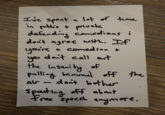 I've spent a lot of time
in public + private
defending comedians I
don't agree with. If
you're a comedian +
you don't call out
the insanity of
pulling Kimmel off the
air — don't bother
spouting off about
free speech anymore.